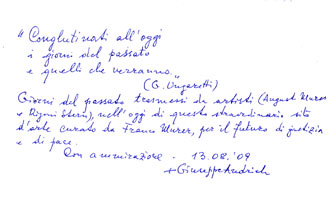 "Conglutinati all'oggi
i giorni del passato
e quelli che verranno."
(G. Ungaretti)
Giorni del passato trasmessi da artisti (August Murer
e Rigoni Stern), nell'oggi di questo straordinario sito
d'arte curato da Franco Murer, per il futuro di giustizia
e di pace.
Con ammirazione - 13.08.'09.
+ Giuseppe Andrich